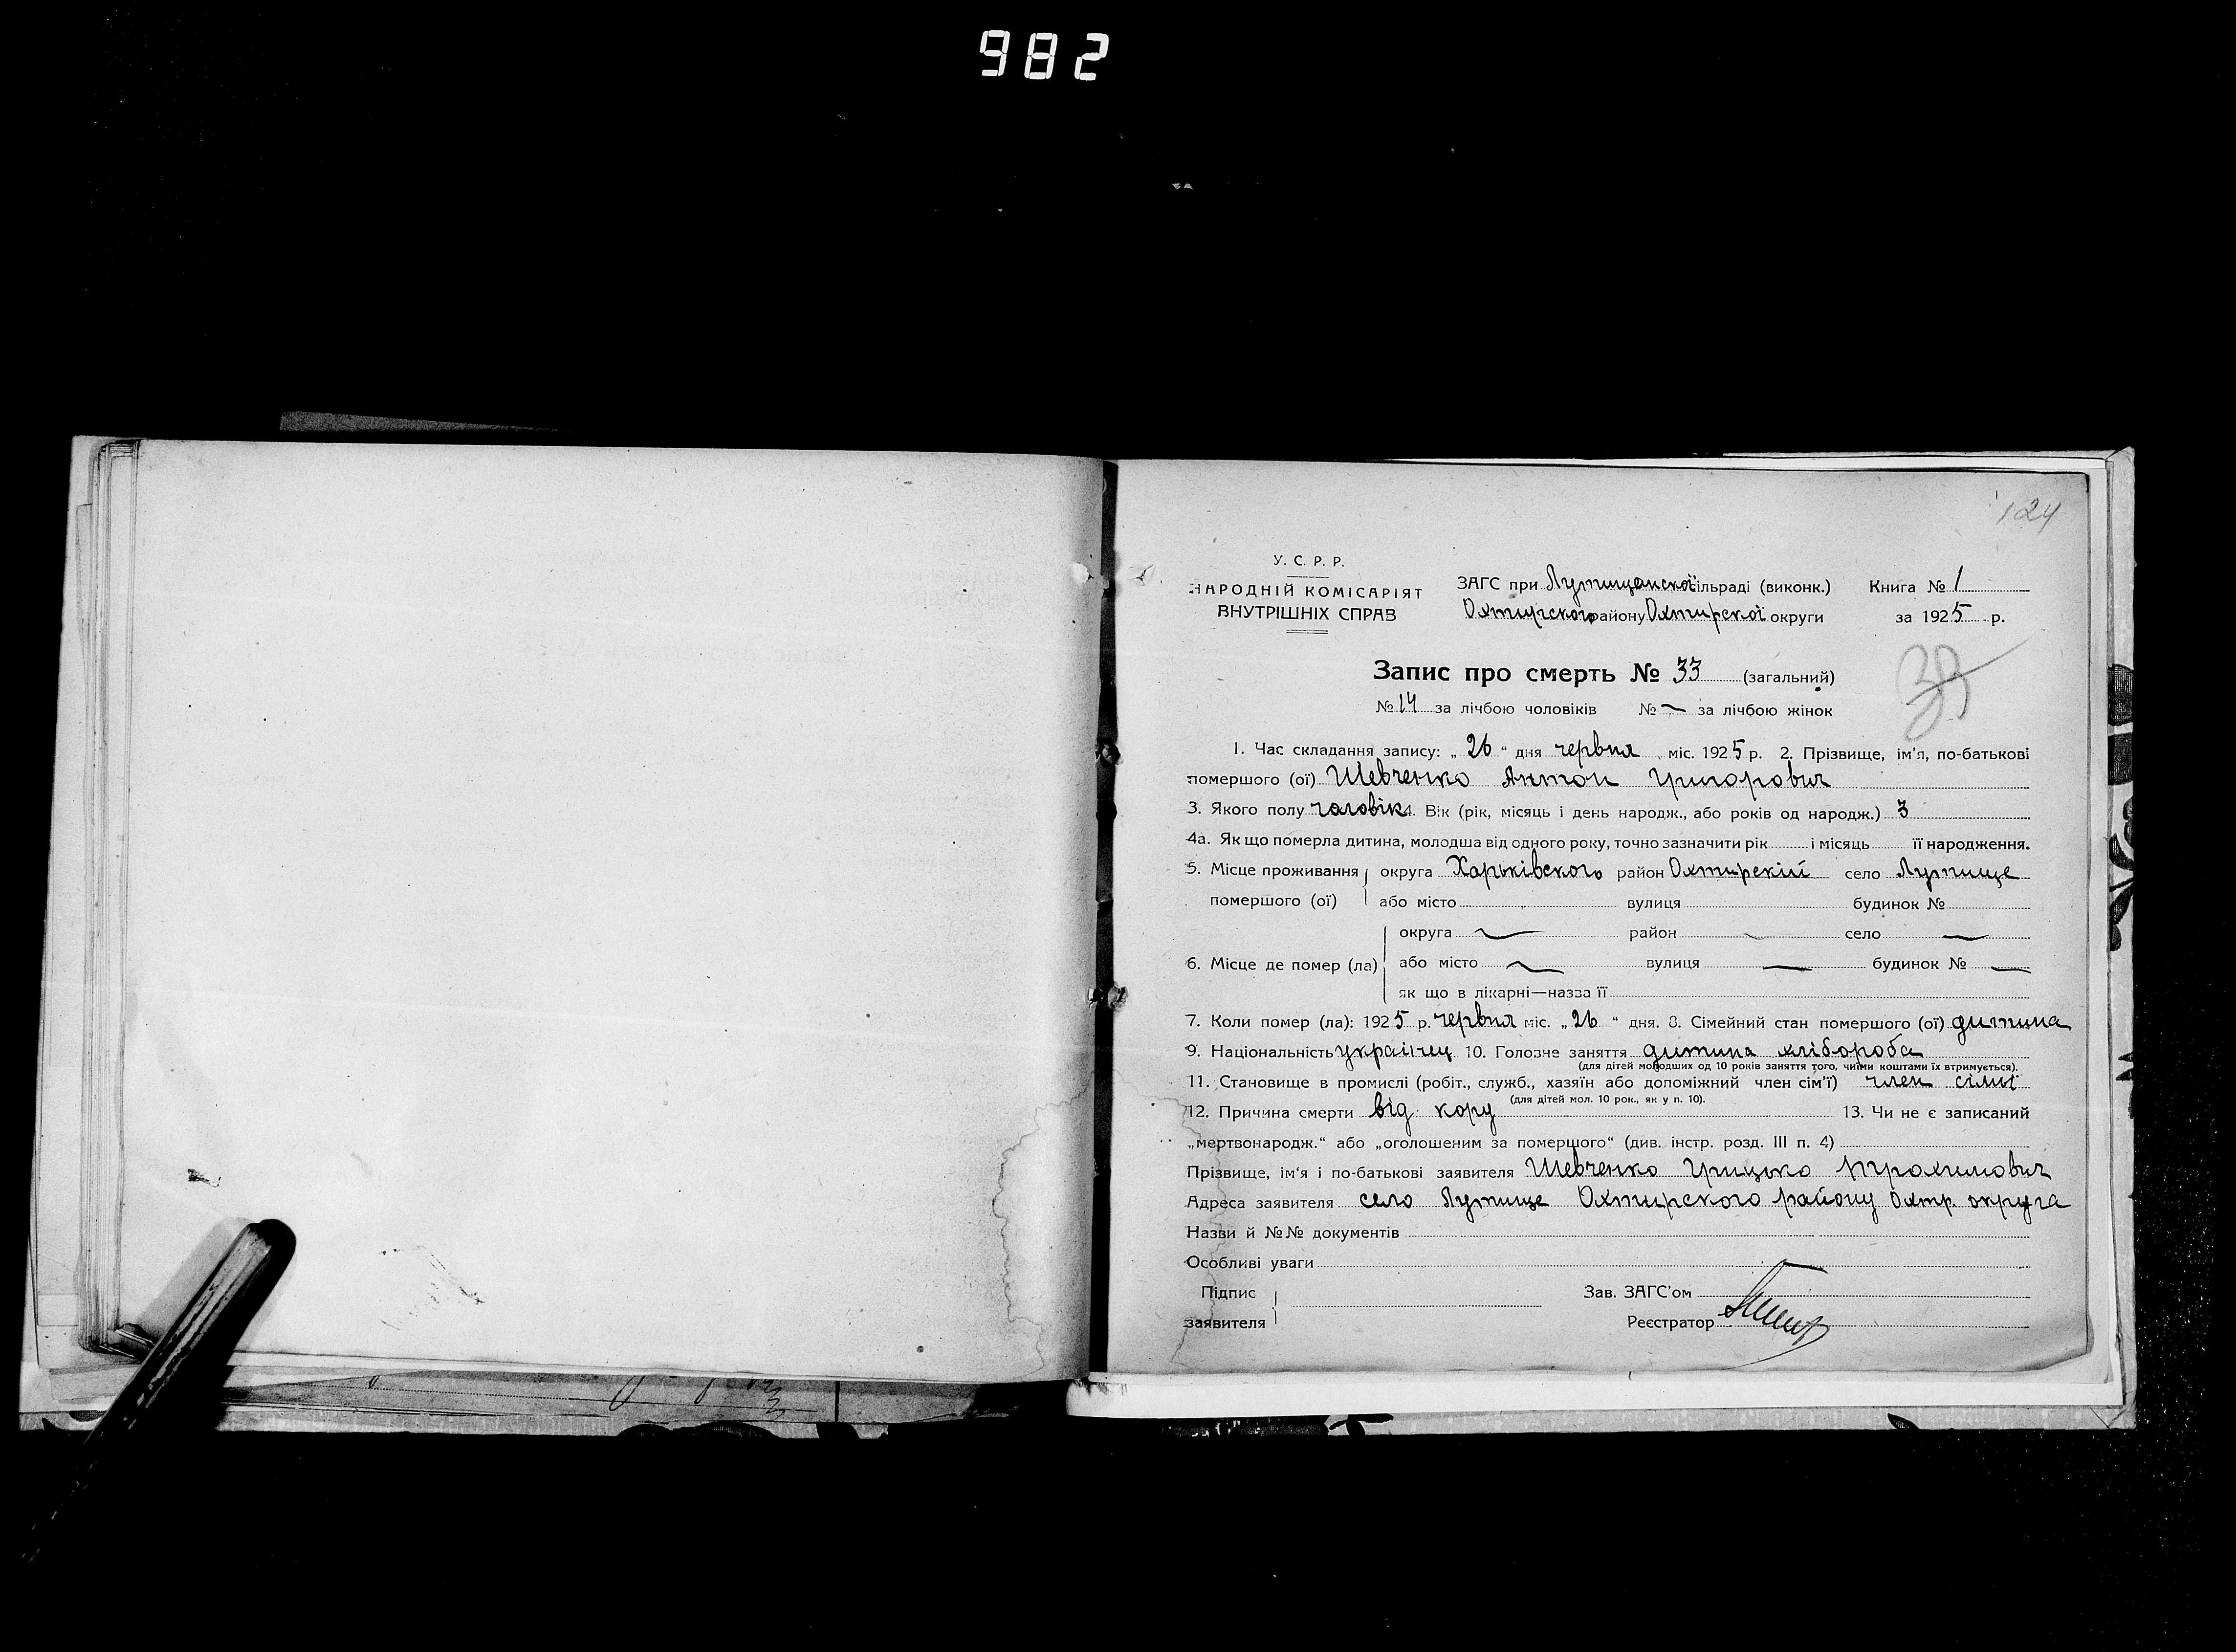 982
124
У. С. Р. Р.
НАРОДНІЙ КОМІСАРІЯТ
ВНУТРІШНІХ СПРАВ
ЗАГС при Лутищанскої сільраді (виконк.) Книга № 1
Охтирского району Охтирскої округи за 1925 р.
Запис про смерть № 33 (загальний)
38
№ 14 за лічбою чоловіків № — за лічбою жінок
1. Час складання запису: „ 26 “ дня червня міс. 1925 р. 2. Прізвище, ім'я, по-батькові
помершого (ої) Шевченко Антон Григорович
3. Якого полу чоловік 4. Вік (рік, місяць і день народж., або років од народж.) 3
4а. Як що померла дитина, молодша від одного року, точно зазначити рік і місяць її народження.
5. Місце проживання округа Харьківского район Охтирскій село Лутище
помершого (ої) або місто вулиця будинок №
округа — район — село —
6. Місце де помер (ла) або місто — вулиця — будинок № —
як що в лікарні—назва її
7. Коли помер (ла): 1925 р. червня міс. „ 26 “ дня. 8. Сімейний стан помершого (ої) дитина
9. Національність українец 10. Головне заняття дитина хлібороба
(для дітей молодших од 10 років заняття того, чиїми коштами їх втримується).
11. Становище в промислі (робіт., служб., хазяїн або допоміжний член сім'ї) член сімї
(для дітей мол. 10 рок., як у п. 10).
12. Причина смерти від кору 13. Чи не є записаний
„мертвонародж.“ або „оголошеним за померщого“ (див. інстр. розд. III п. 4)
Прізвище, ім'я і по-батькові заявителя Шевченко Грицько Трохимович
Адреса заявителя село Лутище Охтирского району Охтр. округа
Назви й №№ документів
Особливі уваги
Підпис Зав. ЗАГС'ом
заявителя Реєстратор